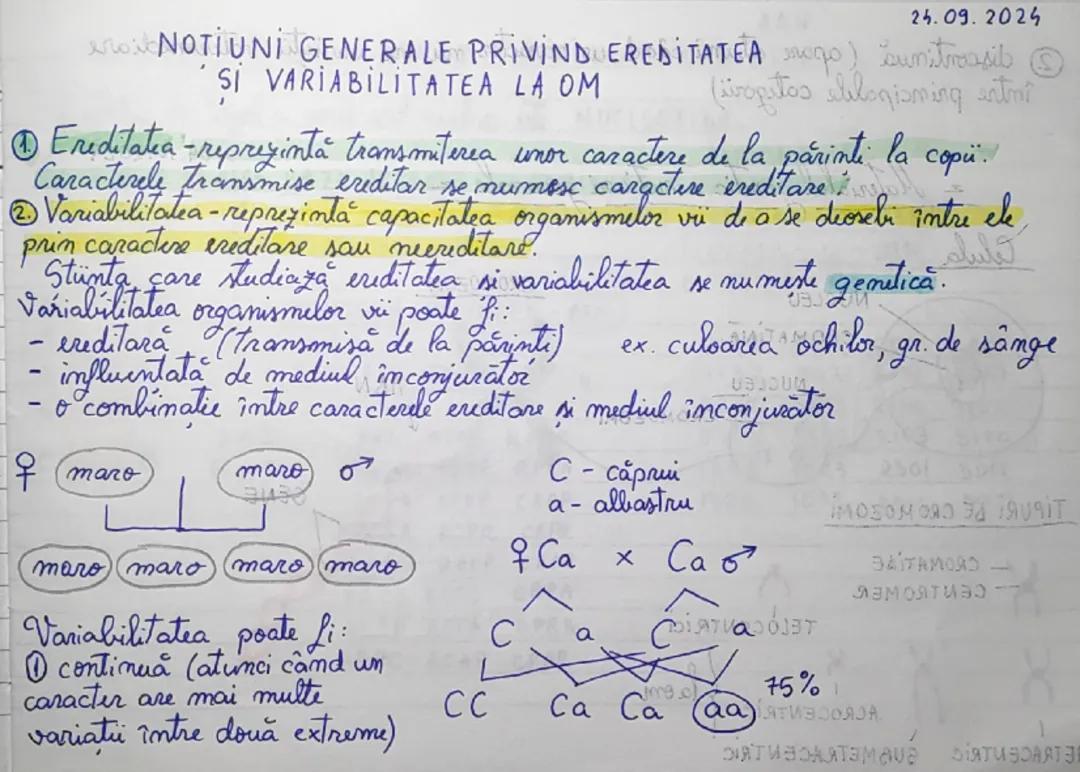 24.09.2024
NOȚIUNI GENERALE PRIVIND EREDITATEA
ȘI VARIABILITATEA LA OM
1. Ereditatea - reprezintă transmiterea unor caractere de la părinți la copii.
Caracterele transmise ereditar se numesc caractere ereditare.
2. Variabilitatea - reprezintă capacitatea organismelor vii de a se deosebi între ele
prin caractere ereditare sau neereditare.
Știința care studiază ereditatea și variabilitatea se numește genetică.
Variabilitatea organismelor vii poate fi:
- ereditară (transmisă de la părinți) ex. culoarea ochilor, gr. de sânge
- influențată de mediul înconjurător
- o combinație între caracterele ereditare și mediul înconjurător
♀ maro maro ♂
maro maro maro maro
C - căprui
a - albastru
♀ Ca x Ca ♂
C a C a
CC Ca Ca aa 75%
Variabilitatea poate fi:
1 continuă (atunci când un
caracter are mai multe
variații între două extreme)